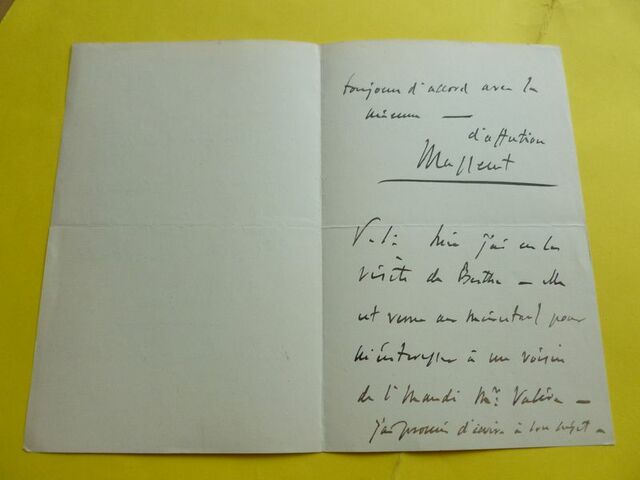 toujours d'accord avec la
mienne —
d'affection
Massenet
j'ai eu la
visite de Berthe — elle
est venue au pour
m'intéresser à un voisin
de Mr. —
j'ai promis d'écrire à son sujet —